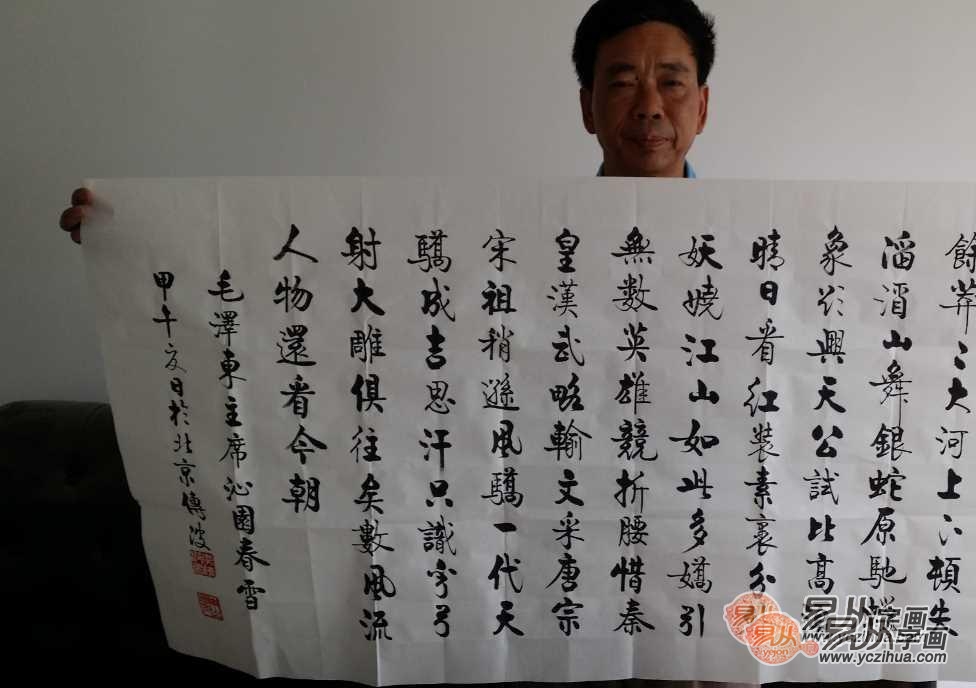 餘莽〻大河上下頓失
滔滔山舞銀蛇原馳蠟
象欲興天公試比高
晴日看紅裝素裹分
妖嬈江山如此多嬌引
無數英雄競折腰惜秦
皇漢武略輸文采唐宗
宋祖稍遜風驕一代天
驕成吉思汗只識彎弓
射大雕俱往矣數風流
人物還看今朝
毛澤東主席沁園春雪
甲午夏日於北京傳波
易从字画
www.yczihua.com